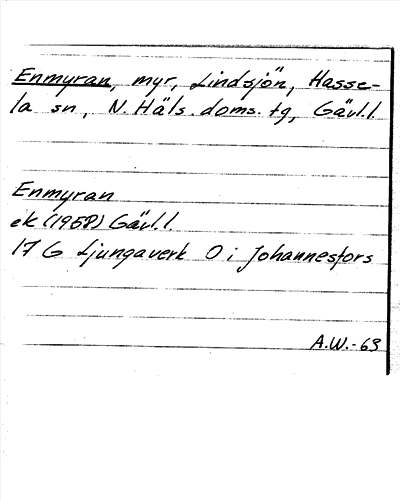 Enmyran, myr, Lindsjön, Hasse-
la sn, N. Häls. doms. tg, Gävl.l.
Enmyran
ek (1958) Gävl.l.
17 G Ljungaverk O i Johannesfors
A.W.-63